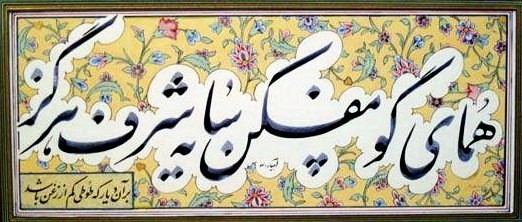 همای گو مفکن سایه شرف هرگز
بر آن دیار که طوطی کم از زغن باشد